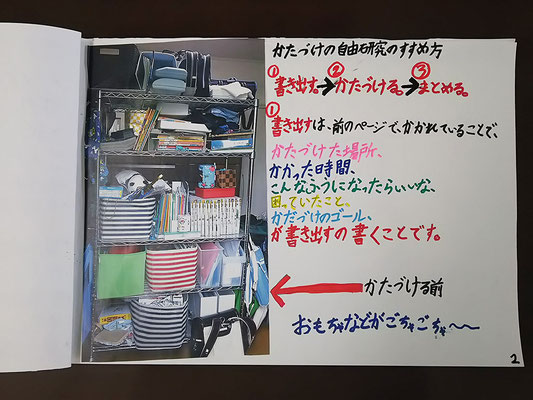 かたづけの自由研究のすすめ方
①書き出す。→②かたづける。→③まとめる。
①書き出すは、前のページで、かかれていることで、
かたづけた場所、
かかった時間、
こんなふうになったらいいな、
困っていたこと、
かたづけのゴール、
が書き出すの書くことです。
かたづける前
おもちゃなどがごちゃごちゃ〜〜
2